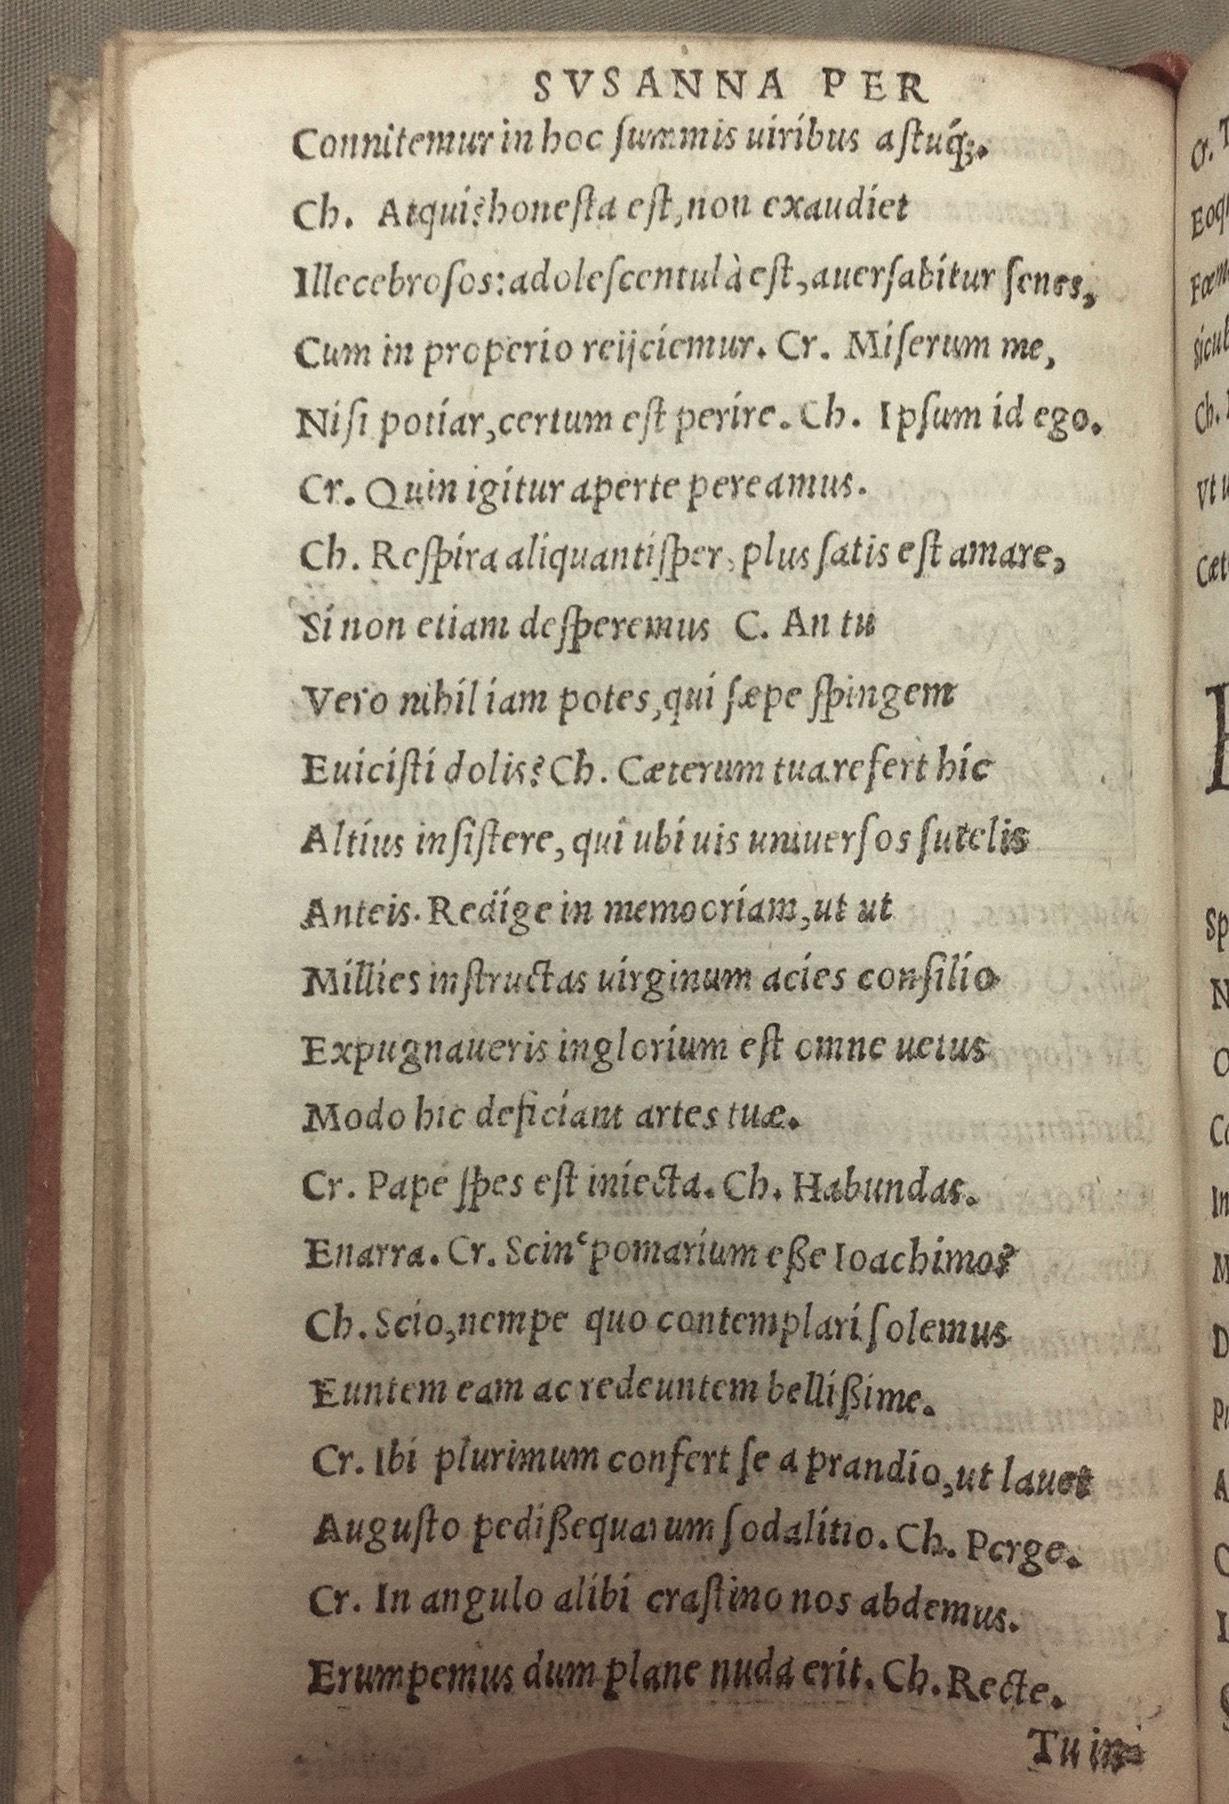 SVSANNA PER
Connitemur in hoc ſummis uiribus aſtuq́;.
Ch. Atqui? honeſta eſt, non exaudiet
Illecebroſos: adoleſcentula est, auerſabitur ſenes,
Cum in properio reijciemur. Cr. Miſerum me,
Niſi potiar, certum eſt perire. Ch. Ipſum id ego.
Cr. Quin igitur aperte pereamus.
Ch. Reſpira aliquantiſper, plus ſatis eſt amare,
Si non etiam deſperemus C. An tu
Vero nihil iam potes, qui ſæpe ſpingem
Euiciſti dolis? Ch. Cæterum tua refert hic
Altius inſiſtere, qui ubi uis uniuerſos ſutelis
Anteis. Redige in memoriam, ut ut
Millies inſtructas uirginum acies conſilio
Expugnaueris inglorium eſt omne uetus
Modo hic deficiant artes tuæ.
Cr. Pape ſpes eſt iniecta. Ch. Habundas.
Enarra. Cr. Scin' pomarium eße Ioachimo?
Ch. Scio, nempe quo contemplari ſolemus
Euntem eam ac redeuntem bellißime.
Cr. Ibi plurimum confert ſe a prandio, ut lauet
Auguſto pedißequarum ſodalitio. Ch. Perge.
Cr. In angulo alibi craſtino nos abdemus.
Erumpemus dum plane nuda erit. Ch. Recte.
Tu in-
Cr.
Ch.
Vt